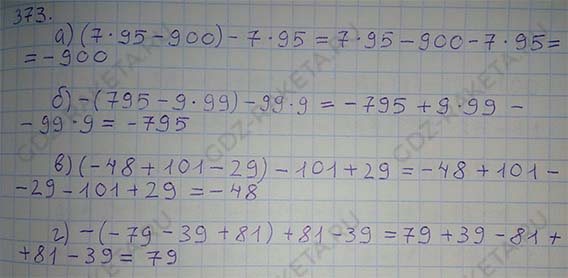 373.
а) (7·95-900)-7·95=7·95-900-7·95=
=-900
б) -(795-9·99)-99·9=-795+9·99-
-99·9=-795
в) (-48+101-29)-101+29=-48+101-
-29-101+29=-48
г) -(-79-39+81)+81-39=79+39-81+
+81-39=79
GDZ-RAKETA.RU